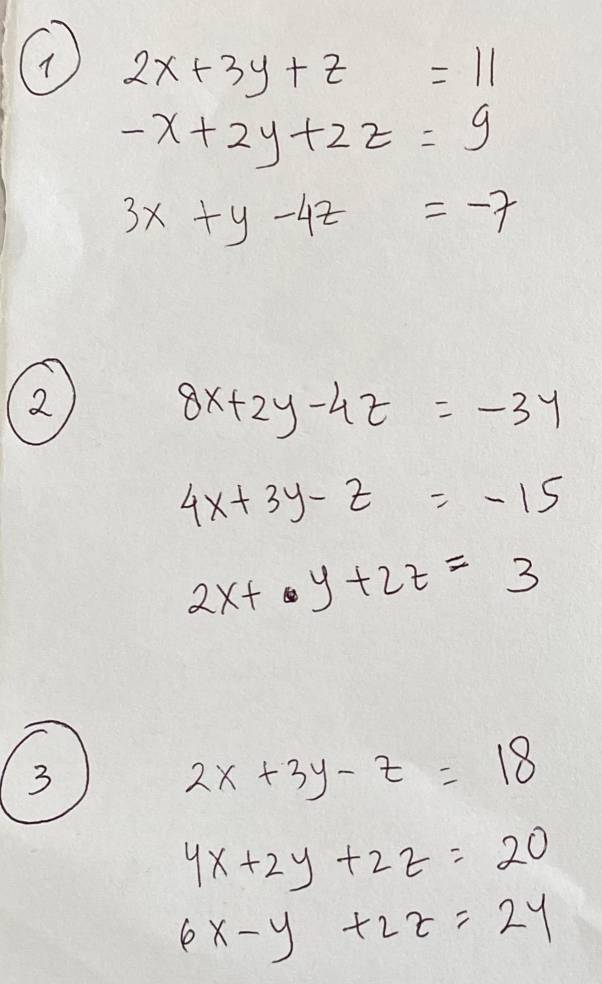 ① 2x+3y+z = 11
-x+2y+2z = 9
3x+y-4z = -7
② 8x+2y-4z = -34
4x+3y-z = -15
2x+y+2z = 3
③ 2x+3y-z = 18
4x+2y+2z = 20
6x-y+2z = 24